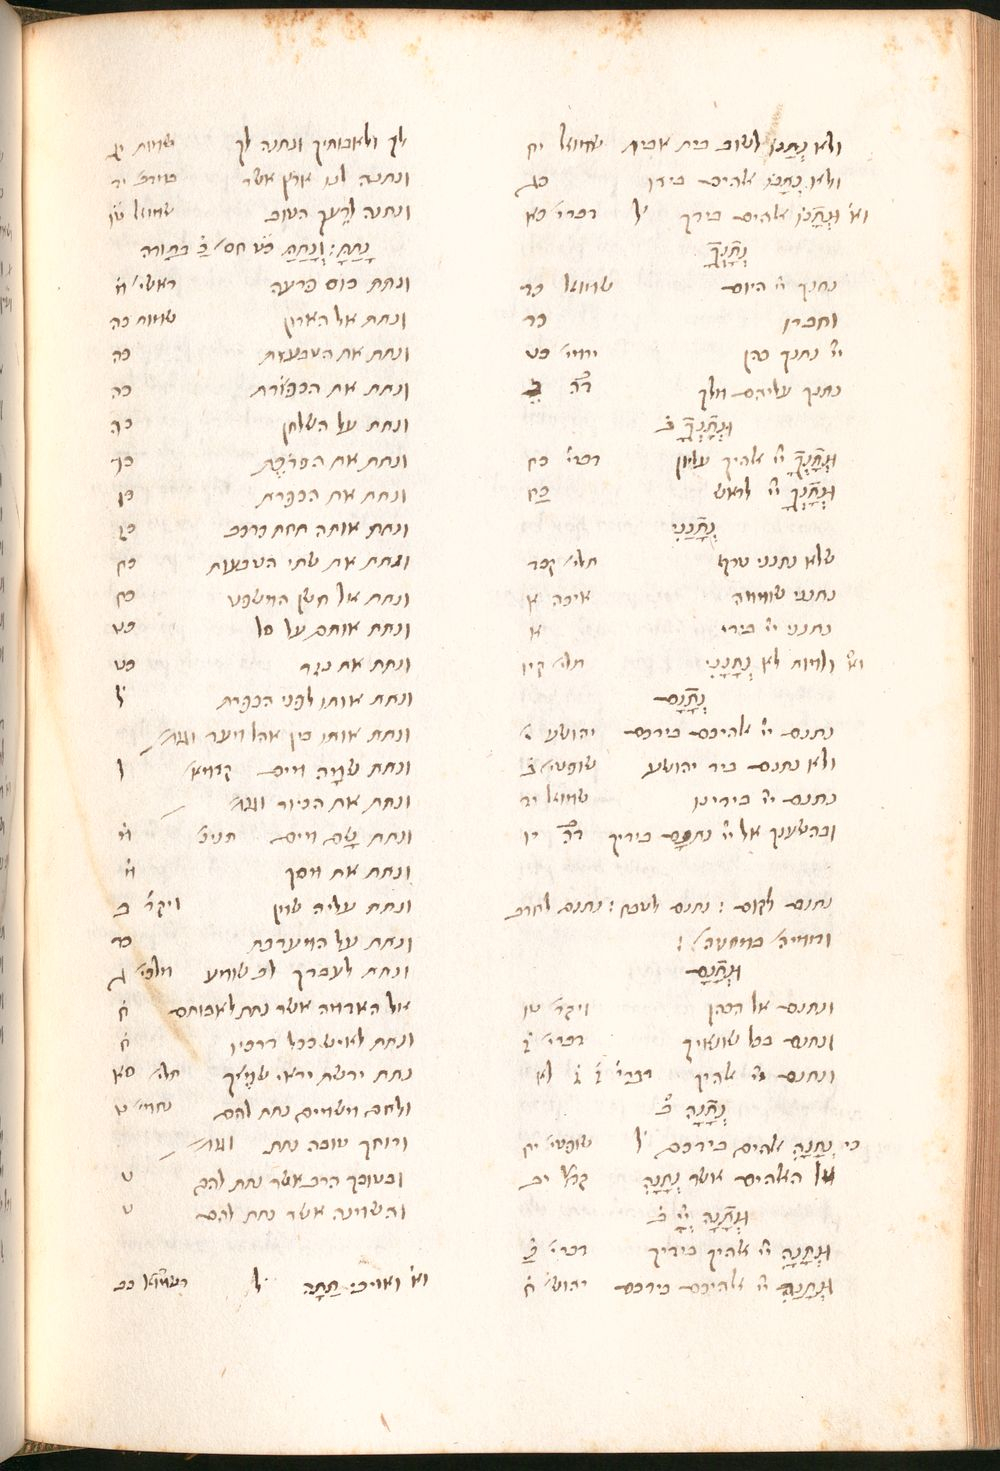 ולא נְתָנוֹ לשוב בית אביו שמואל יח
ולא נְתָנוֹ אלהים בידו כג
וא׳ וּנְתָנוֹ אלהים בידך ל׳ דברי׳ כא
נְתָנְךָ
נתנך יי היום שמואל כד
וחברו כד
יי נתנך כהן ירמי׳ כט
נתנך עליהם מלך דה׳ ב
וּנְתָנְךָ ב
וּנְתָנְךָ יי אלהיך עליון דברי׳ כח
וּנְתָנְךָ יי לראש כח
נְתָנַנִי
שלא נתננו טרף תהל׳ קכד
נתנני שוממה איכה א
נתנני יי בידי א
וא׳ ולמות לא נְתָנָנִי תהל׳ קיו
נְתָנָם
נתנם יי אלהיכם בידכם יהושע
ולא נתנם ביד יהושע שופטי׳ ב
נתנם יי בידינו שמואל יד
ובהשענך אל יי נתנם בידיך דה׳ יו
נתנם לקום : נתנם לטבח : נתנם לחרב
וּנְתָנָם
ונתנם אל הכהן ויקר׳ טו
ונתנם בכל שונאיך דברי׳ ז
ונתנם יי אלהיך דברי׳ ז ז לא
נְתָנָהּ ב
כי נְתָנָהּ אלהים בידכם ל׳ שופטי׳ יח
אל האלהים אשר נְתָנָהּ קהל׳ יב
וּנְתָנָהּ יְיָ ב
וּנְתָנָהּ יי אלהיך בידיך דברי׳ כ
וּנְתָנָהּ יי אלהיכם בידכם יהוש׳ ח
לך ולאבותיך ונתנה לך שמות יג
ונתנה לנו ארץ אשר במדב׳ יד
ונתנה לרעך הטוב שמואל טו
נָתַתָּ : וְנָתַתָּ כל חס׳ בתורה
ונתת כוס פרעה ראשי׳ מ
ונתת אל הארון שמות כה
ונתת את הטבעות כה
ונתת את הכפורת כה
ונתת על השלחן כה
ונתת את הפרכת כו
ונתת את הכפרת כו
ונתת אותה תחת כרכב כז
ונתת את שתי הטבעות כח
ונתת אל חשן המשפט כח
ונתת אותם על סל כט
ונתת את נגד כט
ונתת אותו לפני הכפרת ל
ונתת אותו בין אהל מועד וגו׳
ונתת שמה מים קדמא׳ ל
ונתת את הכיור וגו׳
ונתת שם מים תנינ׳ מ
ונתת את מסך מ
ונתת עליה שמן ויקר׳ ב
ונתת על המערכת כד
ונתת לעבדך לב שומע מלכי׳ ג
אל האדמה אשר נתת לאבותם ח
ונתת לאיש ככל דרכיו ח
נתת ירשת יראי שמך תהל׳ סא
ולחם משמים נתת להם נחמי׳ ט
ורוחך טובה נתת וגו׳
ובטובך הרב אשר נתת להם ט
והשמנה אשר נתת להם ט
וא׳ ואויבי תַתָּה ל׳ דשמוא׳ כב